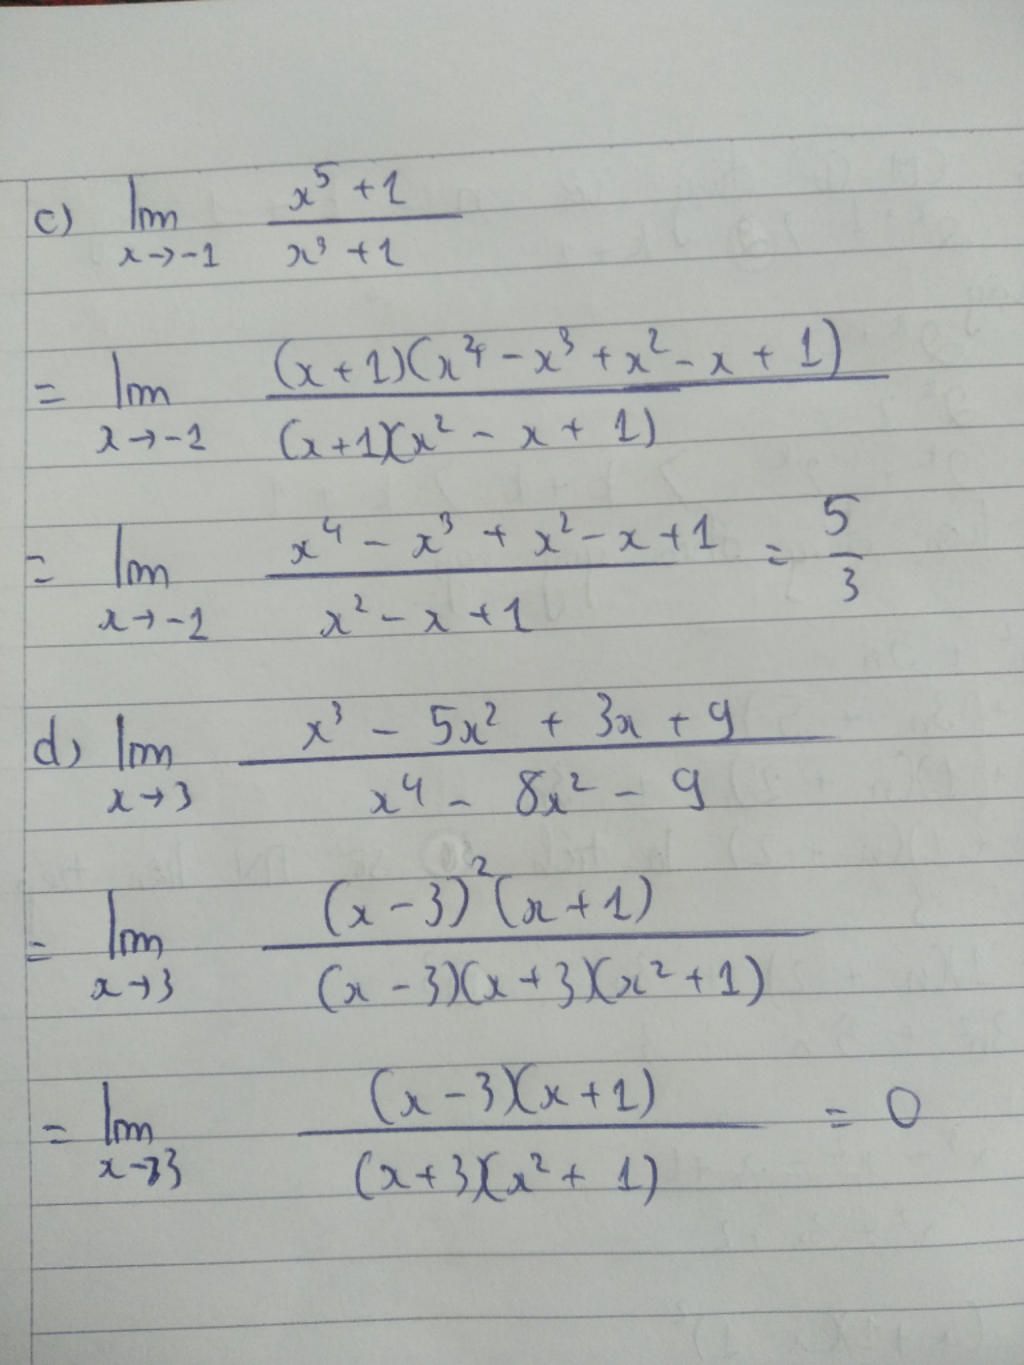 c) lim x→-1 (x⁵ + 1)/(x³ + 1)
= lim x→-1 ((x+1)(x⁴ - x³ + x² - x + 1))/((x+1)(x² - x + 1))
= lim x→-1 (x⁴ - x³ + x² - x + 1)/(x² - x + 1) = 5/3
d) lim x→3 (x³ - 5x² + 3x + 9)/(x⁴ - 8x² - 9)
= lim x→3 ((x-3)²(x+1))/((x-3)(x+3)(x²+1))
= lim x→3 ((x-3)(x+1))/((x+3)(x²+1)) = 0